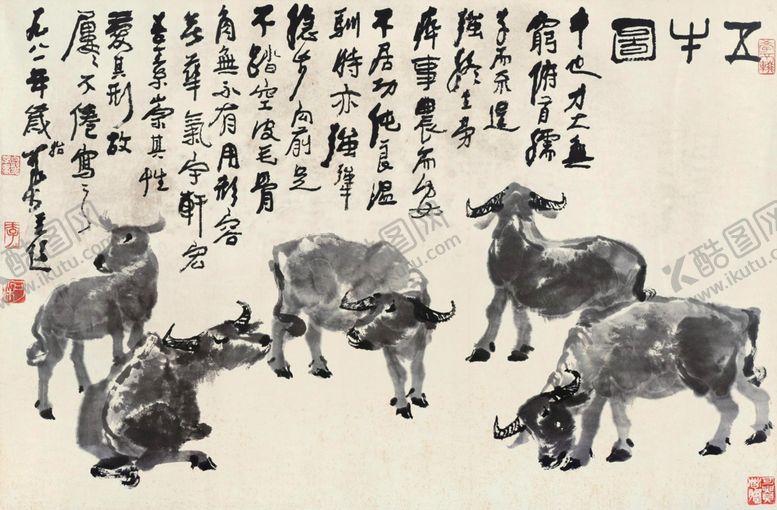 五牛圖
牛也力大無
窮俯首孺
子而不逞
強終生勞
瘁事農而安
不居功纯良温
馴時亦強犟
稳步向前足
不踏空皮毛骨
角無不有用形容
無華氣宇軒宏
吾素崇其性
愛其形故
屢屢不倦寫之
一九八二年歲始可染並題
酷图网
www.ikutu.com